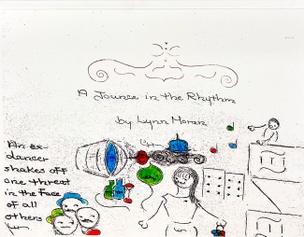 A Jounce in the Rhythm
by Lynn Moran
An ex-
dancer
shakes off
one threat
in the Face
of all
others